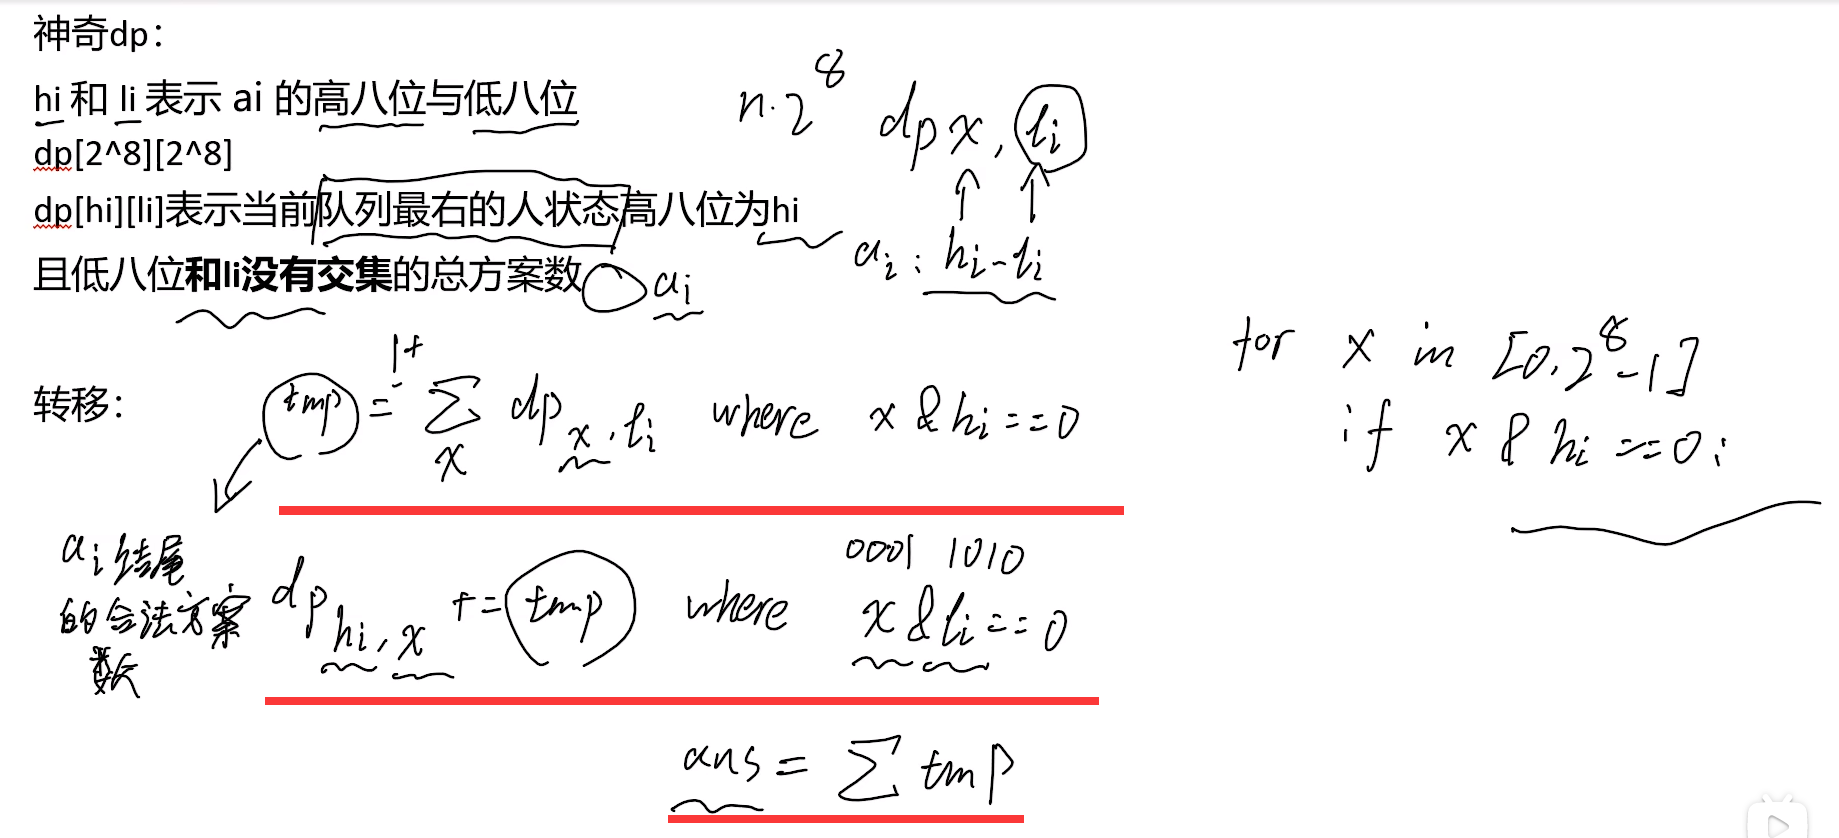 神奇dp：
hi 和 li 表示 ai 的高八位与低八位
n·2^8
dp x, li
dp[2^8][2^8]
dp[hi][li]表示当前队列最右的人状态高八位为hi
ai : hi-li
且低八位和li没有交集的总方案数
ai
转移：
tmp = 1+ ∑x dp x,li where x & hi == 0
for x in [0, 2^8-1]
if x & hi == 0 :
ai 结尾
的合法方案
数
0001 1010
dp hi,x += tmp where x & li == 0
ans = ∑ tmp